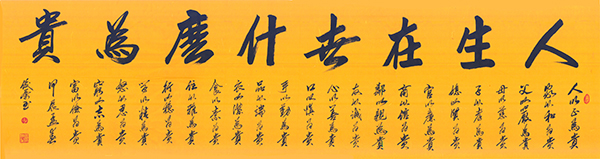 人生在世什麼為貴
人以正為貴
家以和為貴
父以嚴為貴
母以慈為貴
子以孝為貴
媳以賢為貴
官以廉為貴
商以信為貴
鄰以親為貴
友以誠為貴
心以善為貴
口以慎為貴
手以勤為貴
品以端為貴
衣以潔為貴
食以素為貴
住以雅為貴
行以穩為貴
學以精為貴
怒以忍為貴
窮以志為貴
富以儉為貴
甲辰孟夏